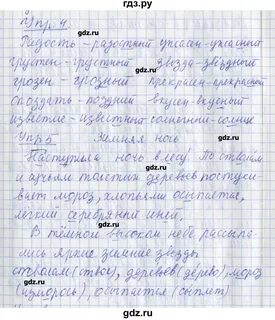 gdz.ru
Упр. 4.
Радость - радостный ужасен - ужасный
грустен - грустный звезда - звёздный
грозен - грозный прекрасен - прекрасный
опоздать - поздний вкусен - вкусный
известие - известный солнечный - солнце
Упр 5 Зимняя ночь
Наступила ночь в лесу. По стволам
и сучьям толстых деревьев постуки-
вает мороз, хлопьями осыпается,
легкий серебряный иней.
В тёмном высоком небе рассыпа-
лись яркие зимние звёзды
стволам (ствол), деревьев (дерево), мороз
(изморось), осыпается (сыплет)